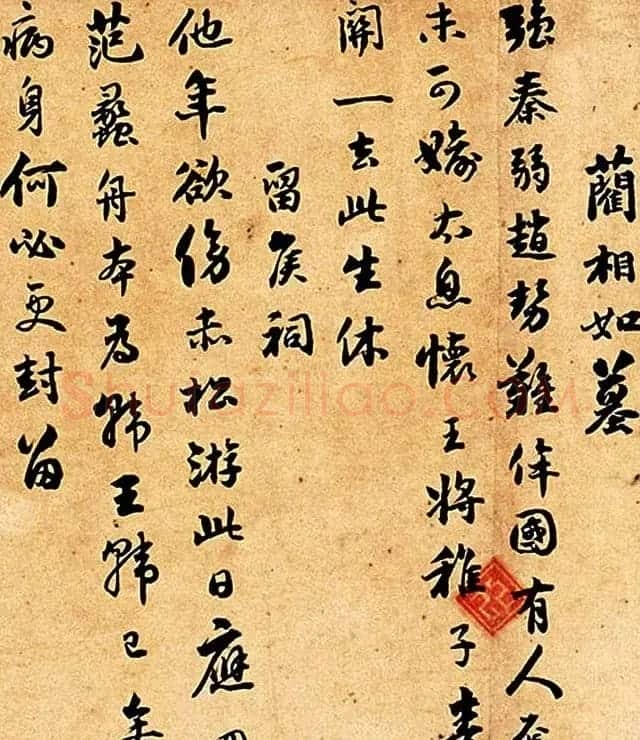 藺相如墓
強秦弱趙勢難侔國有人
未可媮太息懷王將稚子
關一去此生休
留侯祠
他年欲傍赤松游此日應
范蠡舟本為韓王韓已
病身何必更封留
Shufaziliao.com